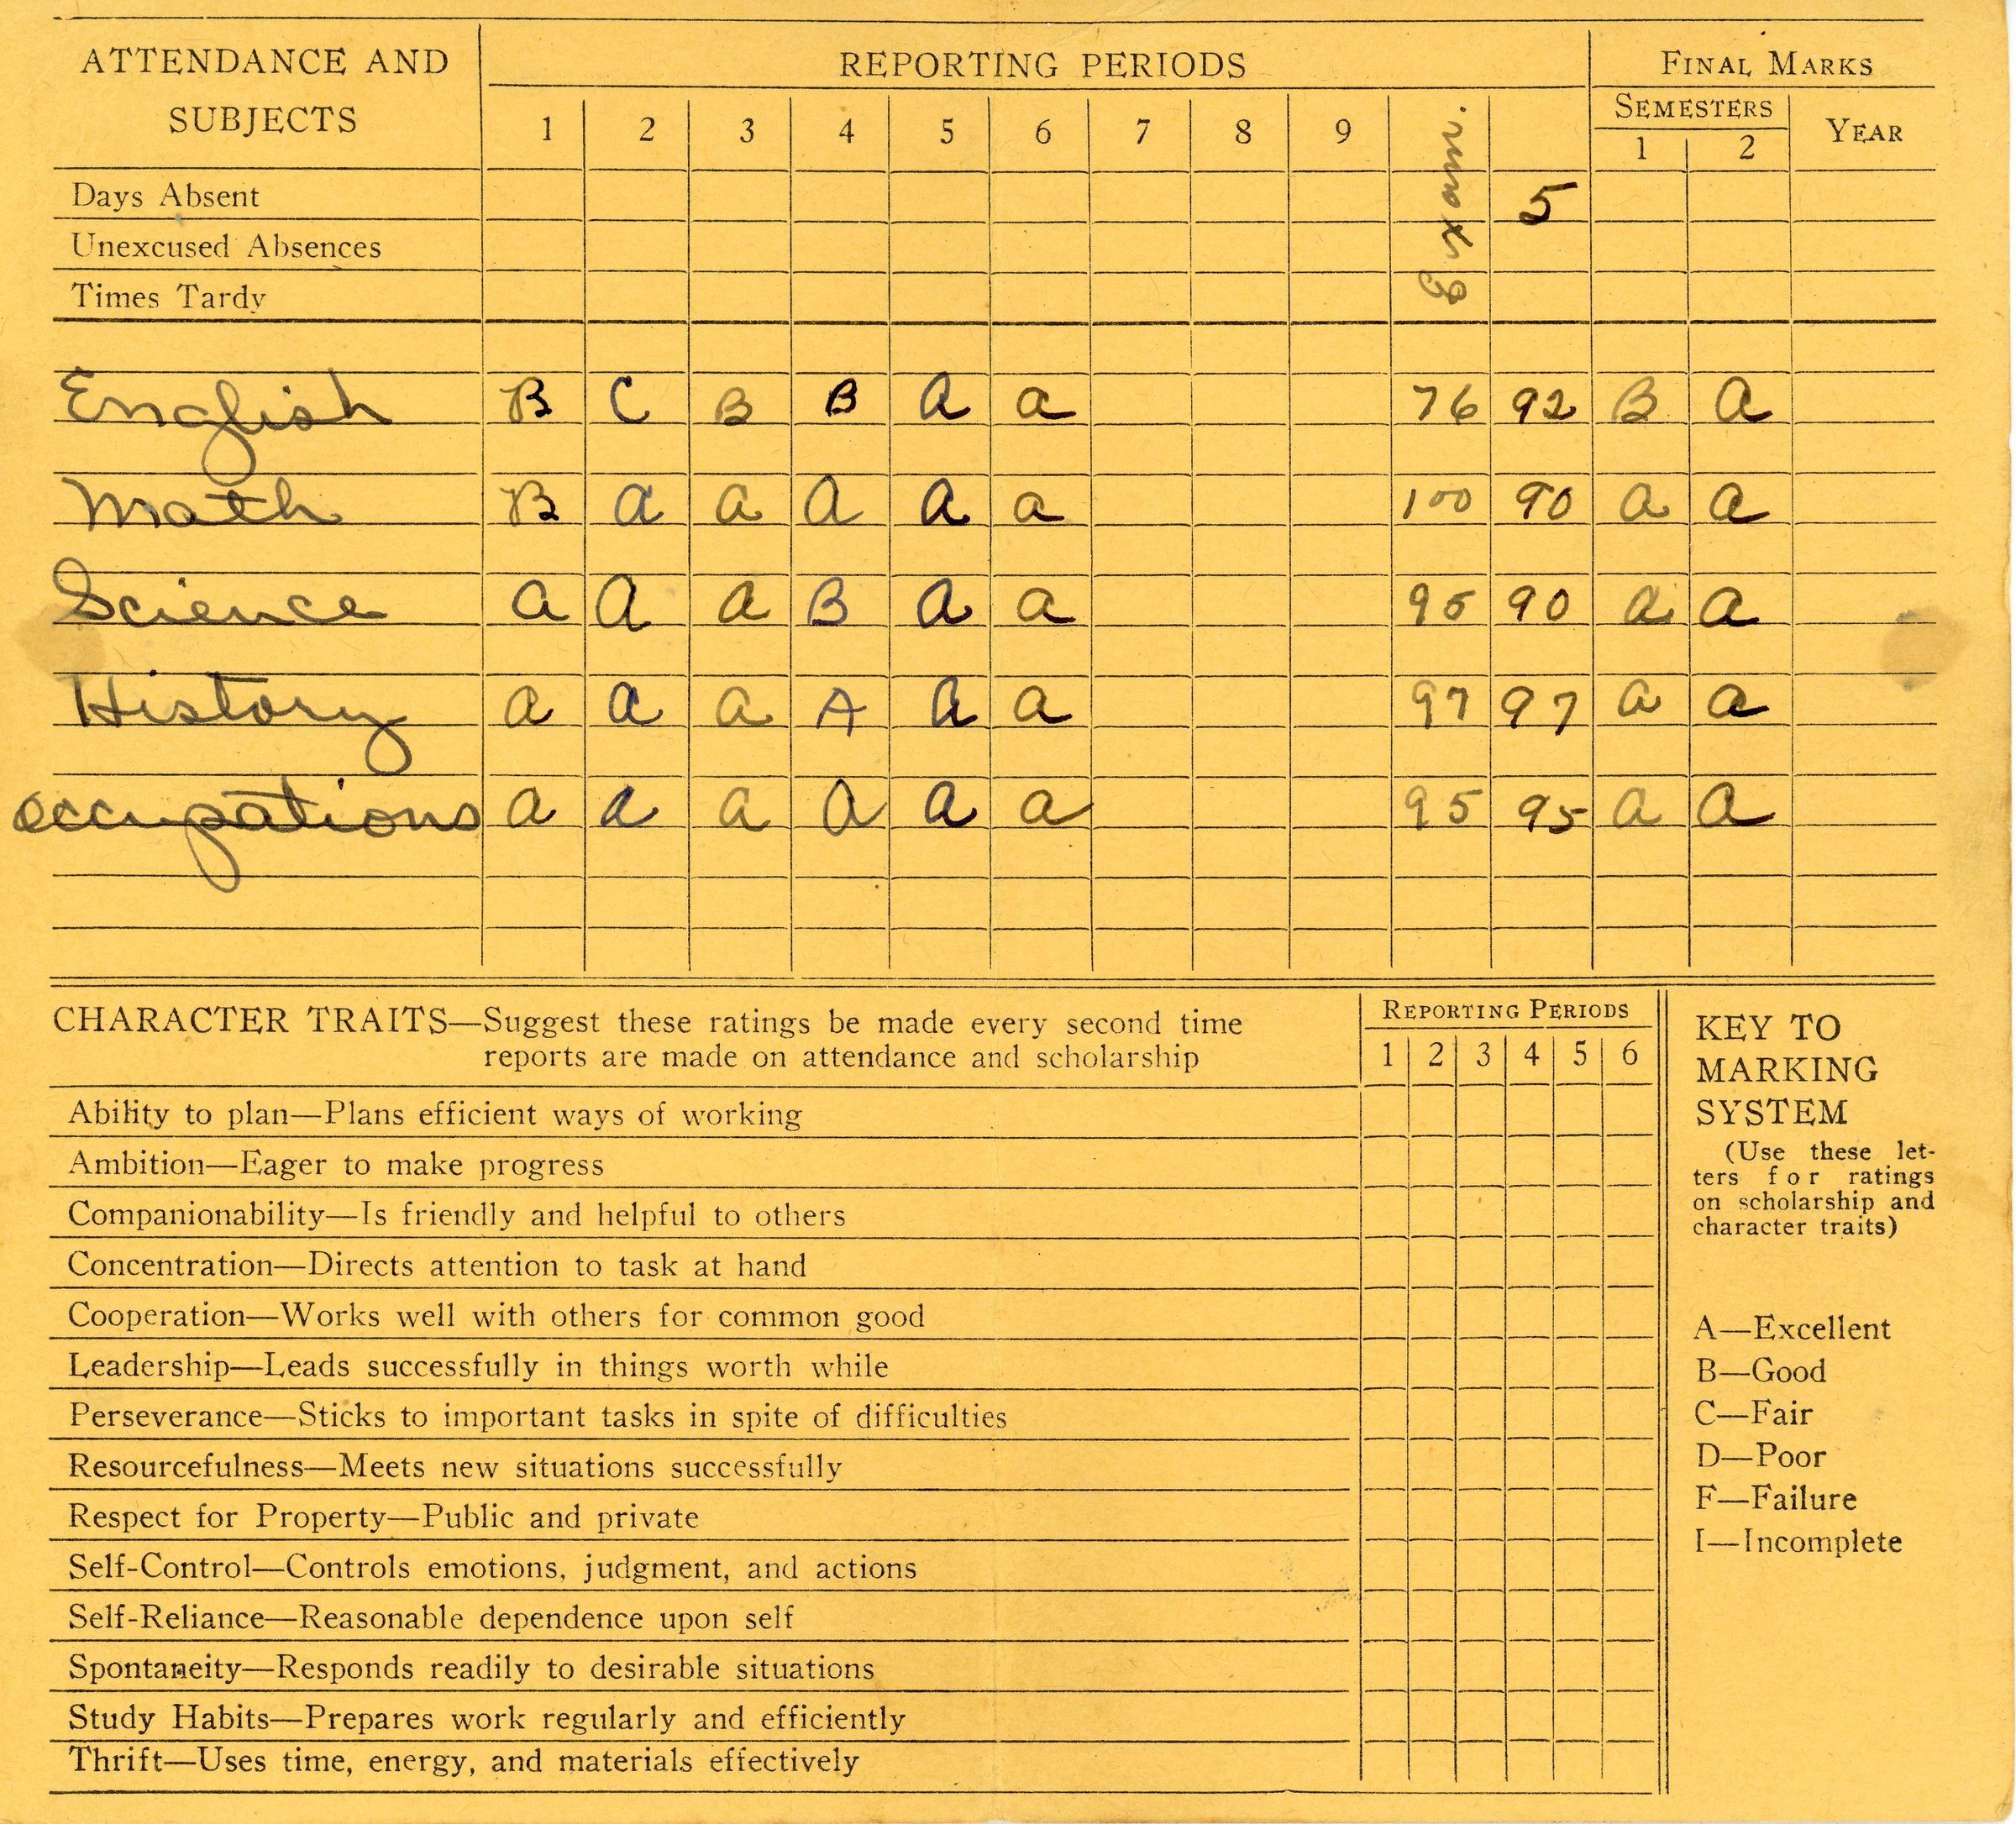 ATTENDANCE AND SUBJECTS REPORTING PERIODS FINAL MARKS
SEMESTERS YEAR
1 2 3 4 5 6 7 8 9 Exam. 1 2
Days Absent 5
Unexcused Absences
Times Tardy
English B C B B A a 76 92 B a
Math B a a a a a 100 90 a a
Science a a a B a a 95 90 a a
History a a a A a a 97 97 a a
occupations a a a a a a 95 95 a a
CHARACTER TRAITS—Suggest these ratings be made every second time
reports are made on attendance and scholarship
REPORTING PERIODS
1 2 3 4 5 6
Ability to plan—Plans efficient ways of working
Ambition—Eager to make progress
Companionability—Is friendly and helpful to others
Concentration—Directs attention to task at hand
Cooperation—Works well with others for common good
Leadership—Leads successfully in things worth while
Perseverance—Sticks to important tasks in spite of difficulties
Resourcefulness—Meets new situations successfully
Respect for Property—Public and private
Self-Control—Controls emotions, judgment, and actions
Self-Reliance—Reasonable dependence upon self
Spontaneity—Responds readily to desirable situations
Study Habits—Prepares work regularly and efficiently
Thrift—Uses time, energy, and materials effectively
KEY TO
MARKING
SYSTEM
(Use these let-
ters for ratings
on scholarship and
character traits)
A—Excellent
B—Good
C—Fair
D—Poor
F—Failure
I—Incomplete